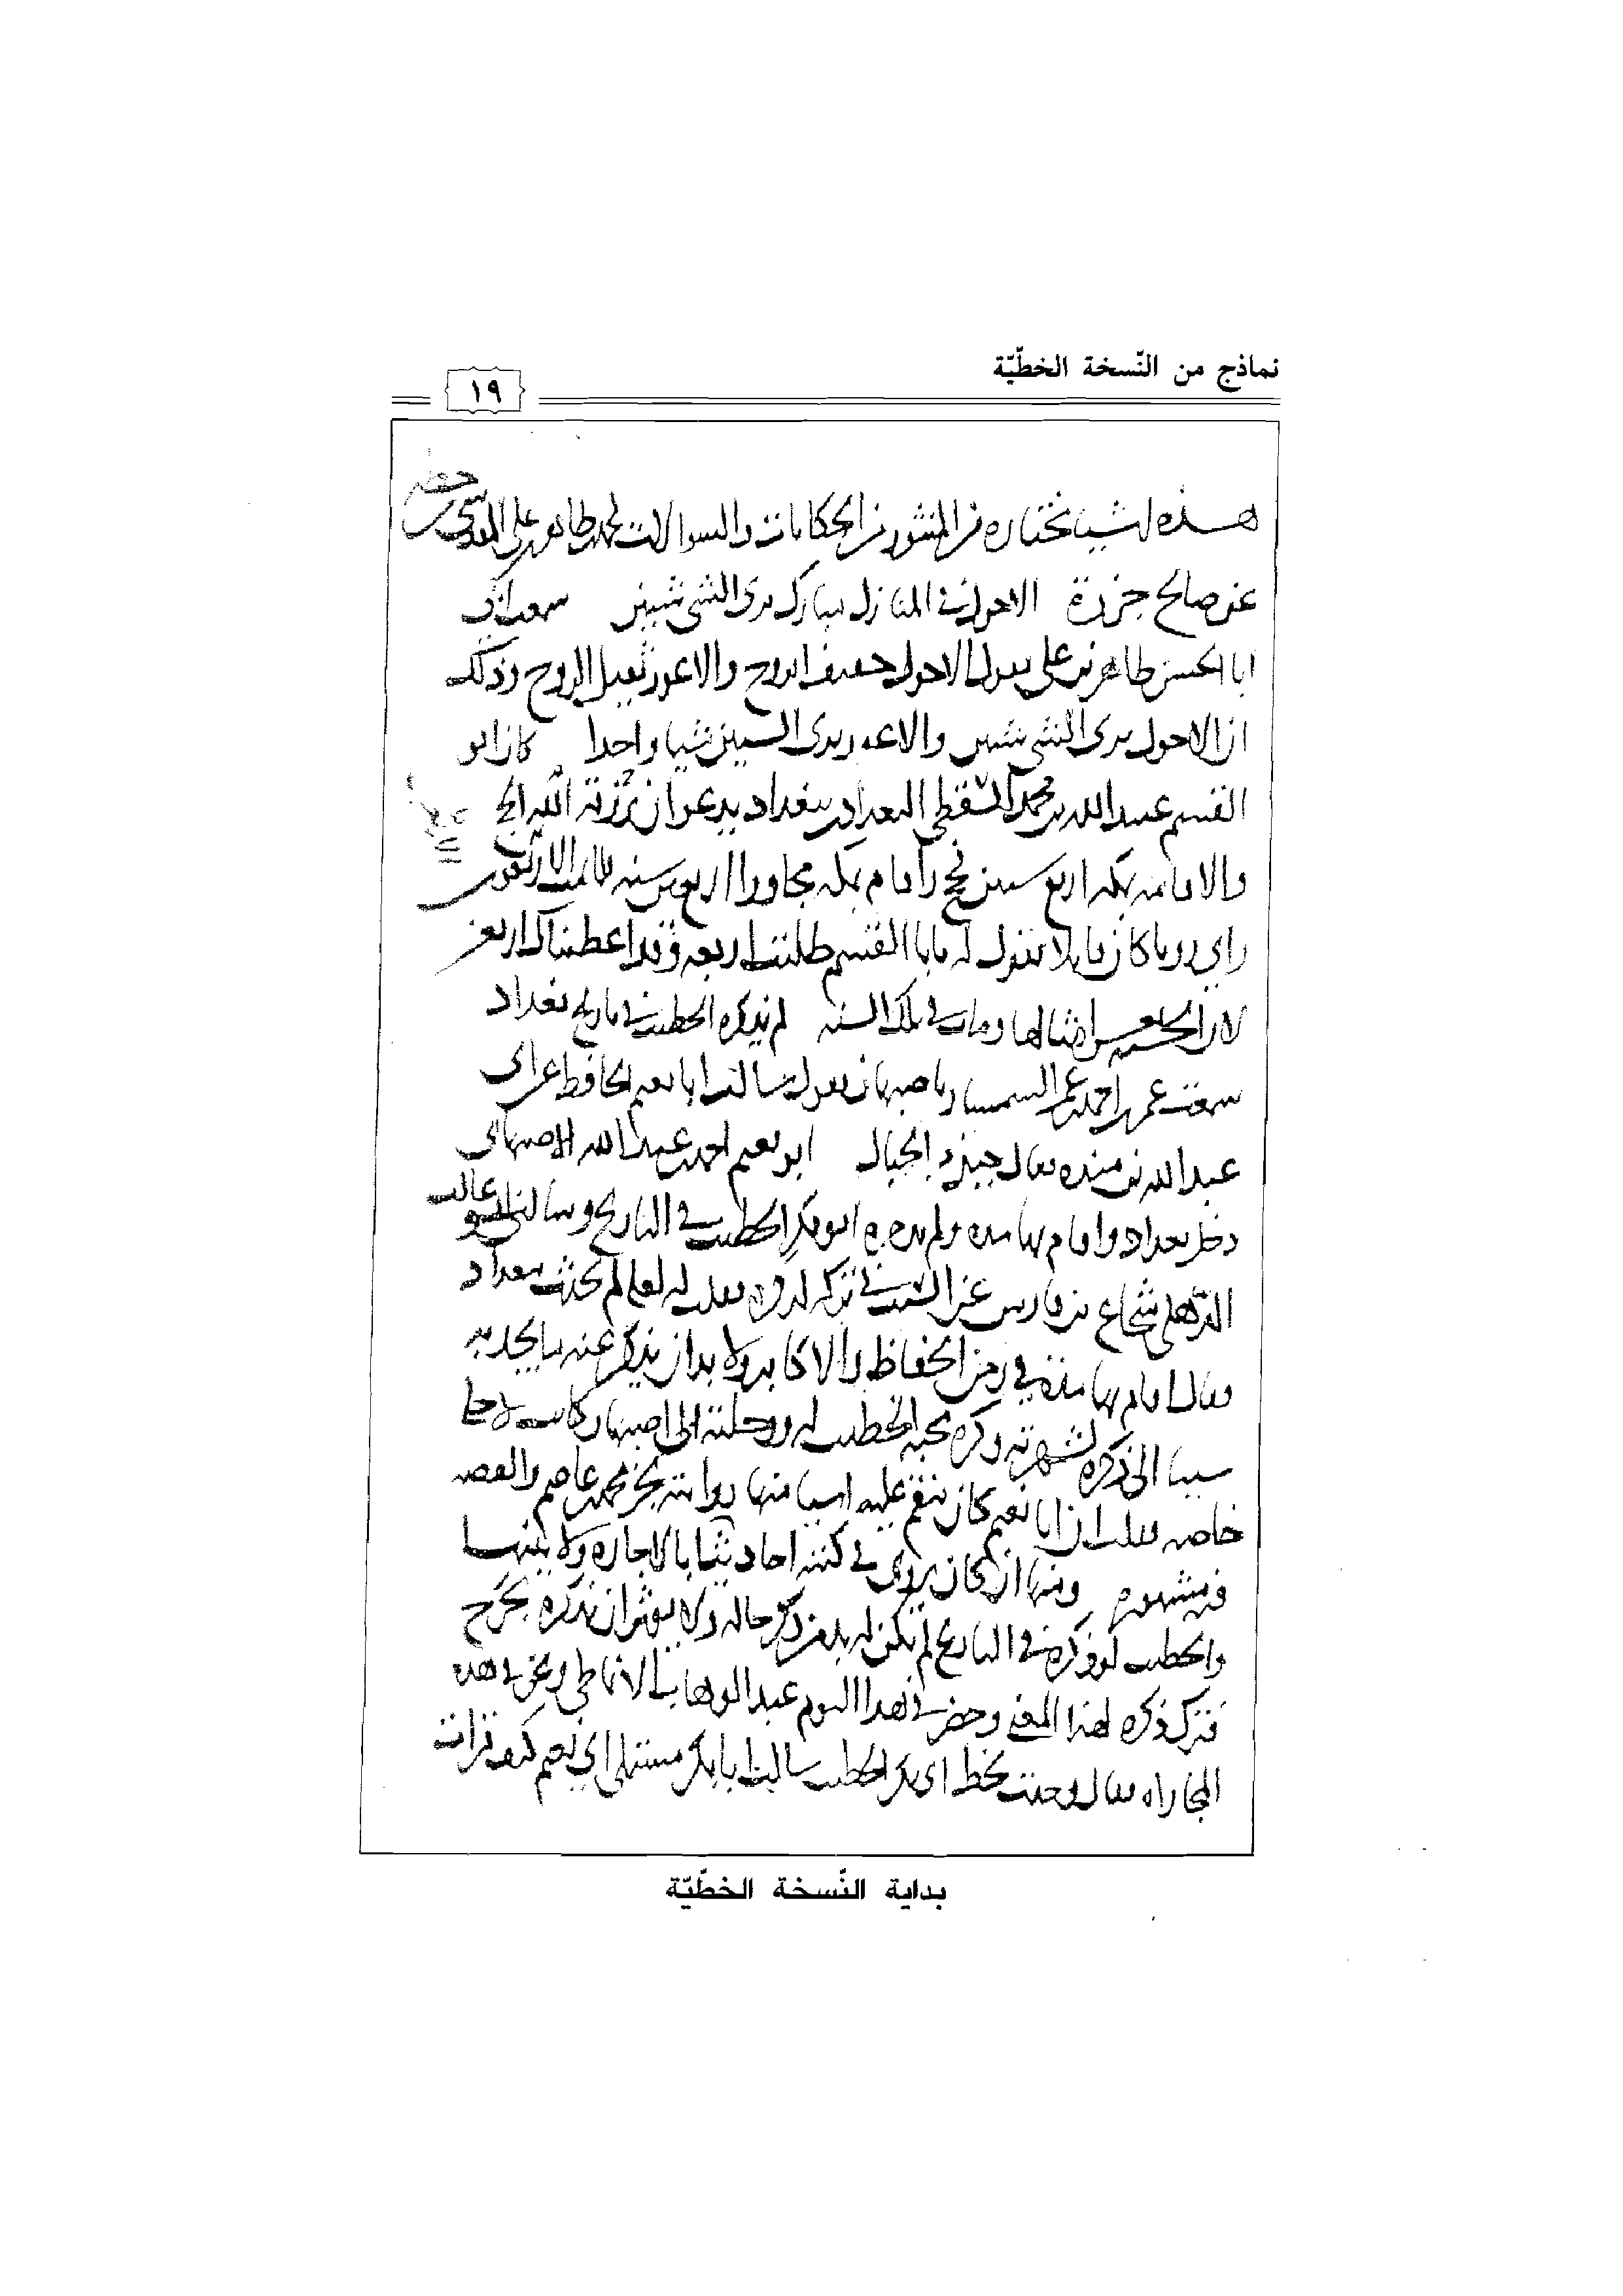 نماذج من النّسخة الخطّيّة
١٩
هذه اشيا مختاره من المنثور من الحكايات والسوالات لمحمد بن طاهر بن على المقدسى
عن صالح جزرة الاحول فى المنازل مبارك يرى الشى شيئين سمعت
ابا الحسن طاهر بن على يقول الاحول خفيف الروح والاعور ثقيل الروح وذلك
ان الاحول يرى الشى شيئين والاعور يرى الشيين شيا واحدا كان ابو
القسم عبيد الله بن محمد السقطى البغدادى ببغداد يدعو ان يرزقه الله الحج
والاقامه بمكه اربع سنين فحج واقام بمكه مجاورا اربعين سنه
راى رويا كان قايلا يقول له يابا القسم طلبت اربعه وقد اعطيناك اربعين
لان الحسنه بعشر امثالها ومات فى تلك السنه لم يذكره الخطيب فى تاريخ بغداد
سمعت عمر بن احمد بن عمر السمسار باصبهان يقول سالت ابا نعيم الحافظ عن ابى
عبد الله بن منده فقال جبل من الجبال ابو نعيم احمد بن عبد الله الاصبهانى
دخل بغداد واقام بها مده ولم يذكره ابو بكر الخطيب فى التاريخ وسالنى ابو غالب
الذهلى شجاع بن فارس عن السبب فى تركه لذكره فقلت له لعله لم يحدث ببغداد
فقال اقام بها مده فى زمن الحفاظ والاكابر ولا بد ان يذكر عنه ما يحدث به
سيما الى ذكره لشهرته وكثره محبه الخطيب له ورحلته الى اصبهان كانت لاجل
خاصه فقلت ان ابا نعيم كان ينقم عليه اشيا منها روايته لجز محمد بن عاصم والقصه
فيه مشهوره ومنها انه كان يروى فى كتبه احاديثا بالاجازه ولا يبينها
والخطيب لو ذكره فى التاريخ لم يكن له بد من ذكر حاله ولا يوثر ان يذكره بجرح
فترك ذكره لهذا المعنى وحضر فى هذا اليوم عبد الوهاب الانماطى ونحن فى هذه
المجاراه فقال وجدت بخط ابى بكر الخطيب سالت ابا بكر مستملى ابى نعيم كيف قرات
بداية النّسخة الخطّيّة